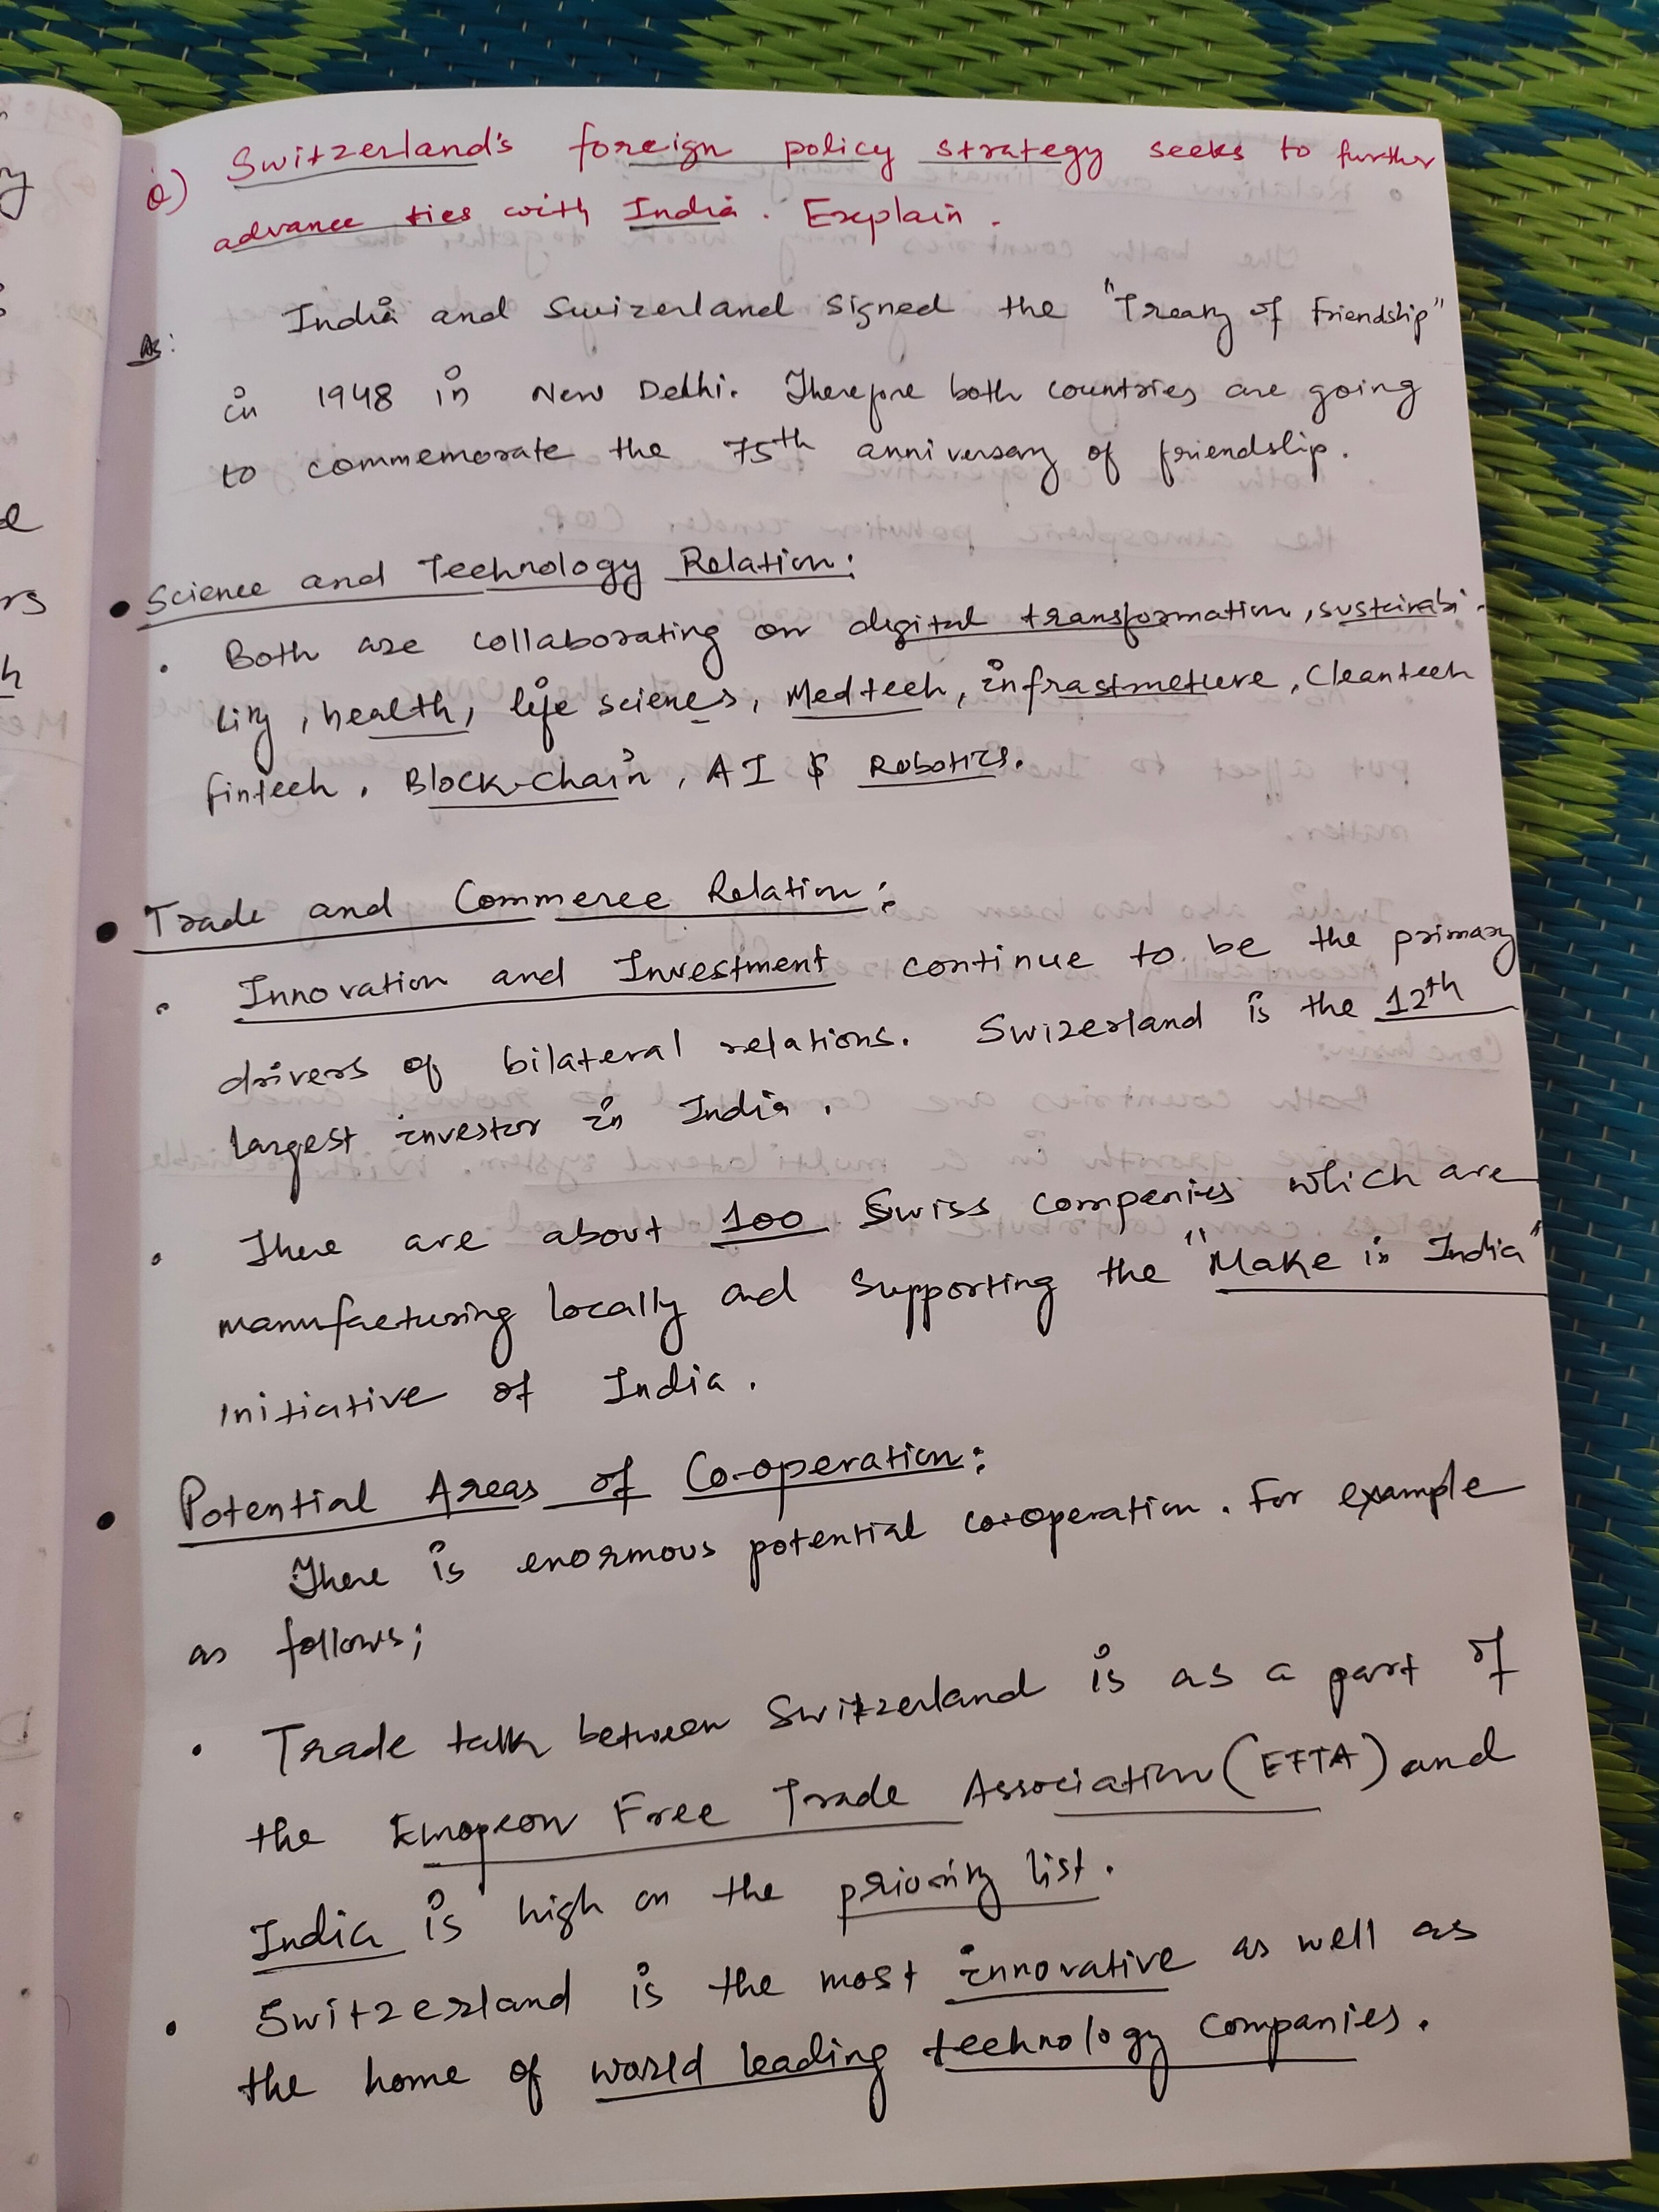 Q) Switzerland's foreign policy strategy seeks to further
advance ties with India. Explain.
As: India and Swizerland signed the "Treaty of Friendship"
in 1948 in New Delhi. Therefore both countries are going
to commemorate the 75th anniversary of friendship.
• Science and Technology Relation:
• Both are collaborating on digital transformation, sustainabi-
lity, health, life sciences, Medtech, infrastructure, Cleantech
fintech, Block-chain, AI & Robotics.
• Trade and Commerce Relation:
• Innovation and Investment continue to be the primary
drivers of bilateral relations. Swizerland is the 12th
largest investor in India.
• There are about 100 Swiss companies which are
manufacturing locally and supporting the "Make in India"
initiative of India.
• Potential Areas of Co-operation:
There is enormous potential co-operation. For example
as follows;
• Trade talk between Switzerland is as a part of
the European Free Trade Association (EFTA) and
India is high on the priority list.
• Switzerland is the most innovative as well as
the home of world leading technology companies.